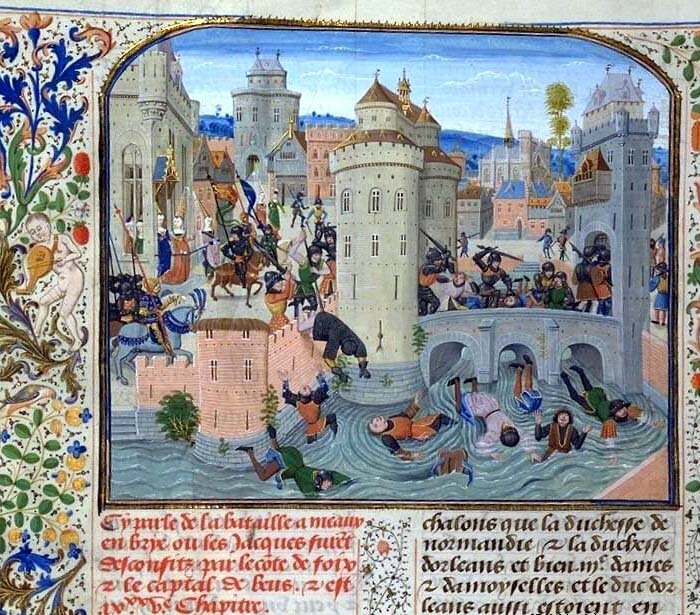 Cy parle de la bataille a meaux
en brye ou les Jacques furēt
desconfitz par le cōte de foix
⁊ le captal de beus, ⁊ est
Chapitre.
chalons que la duchesse de
normandie ⁊ la duchesse
dorleans et bien .iijᶜ. dames
⁊ damoyselles et le duc dor
leans aussi estoient en